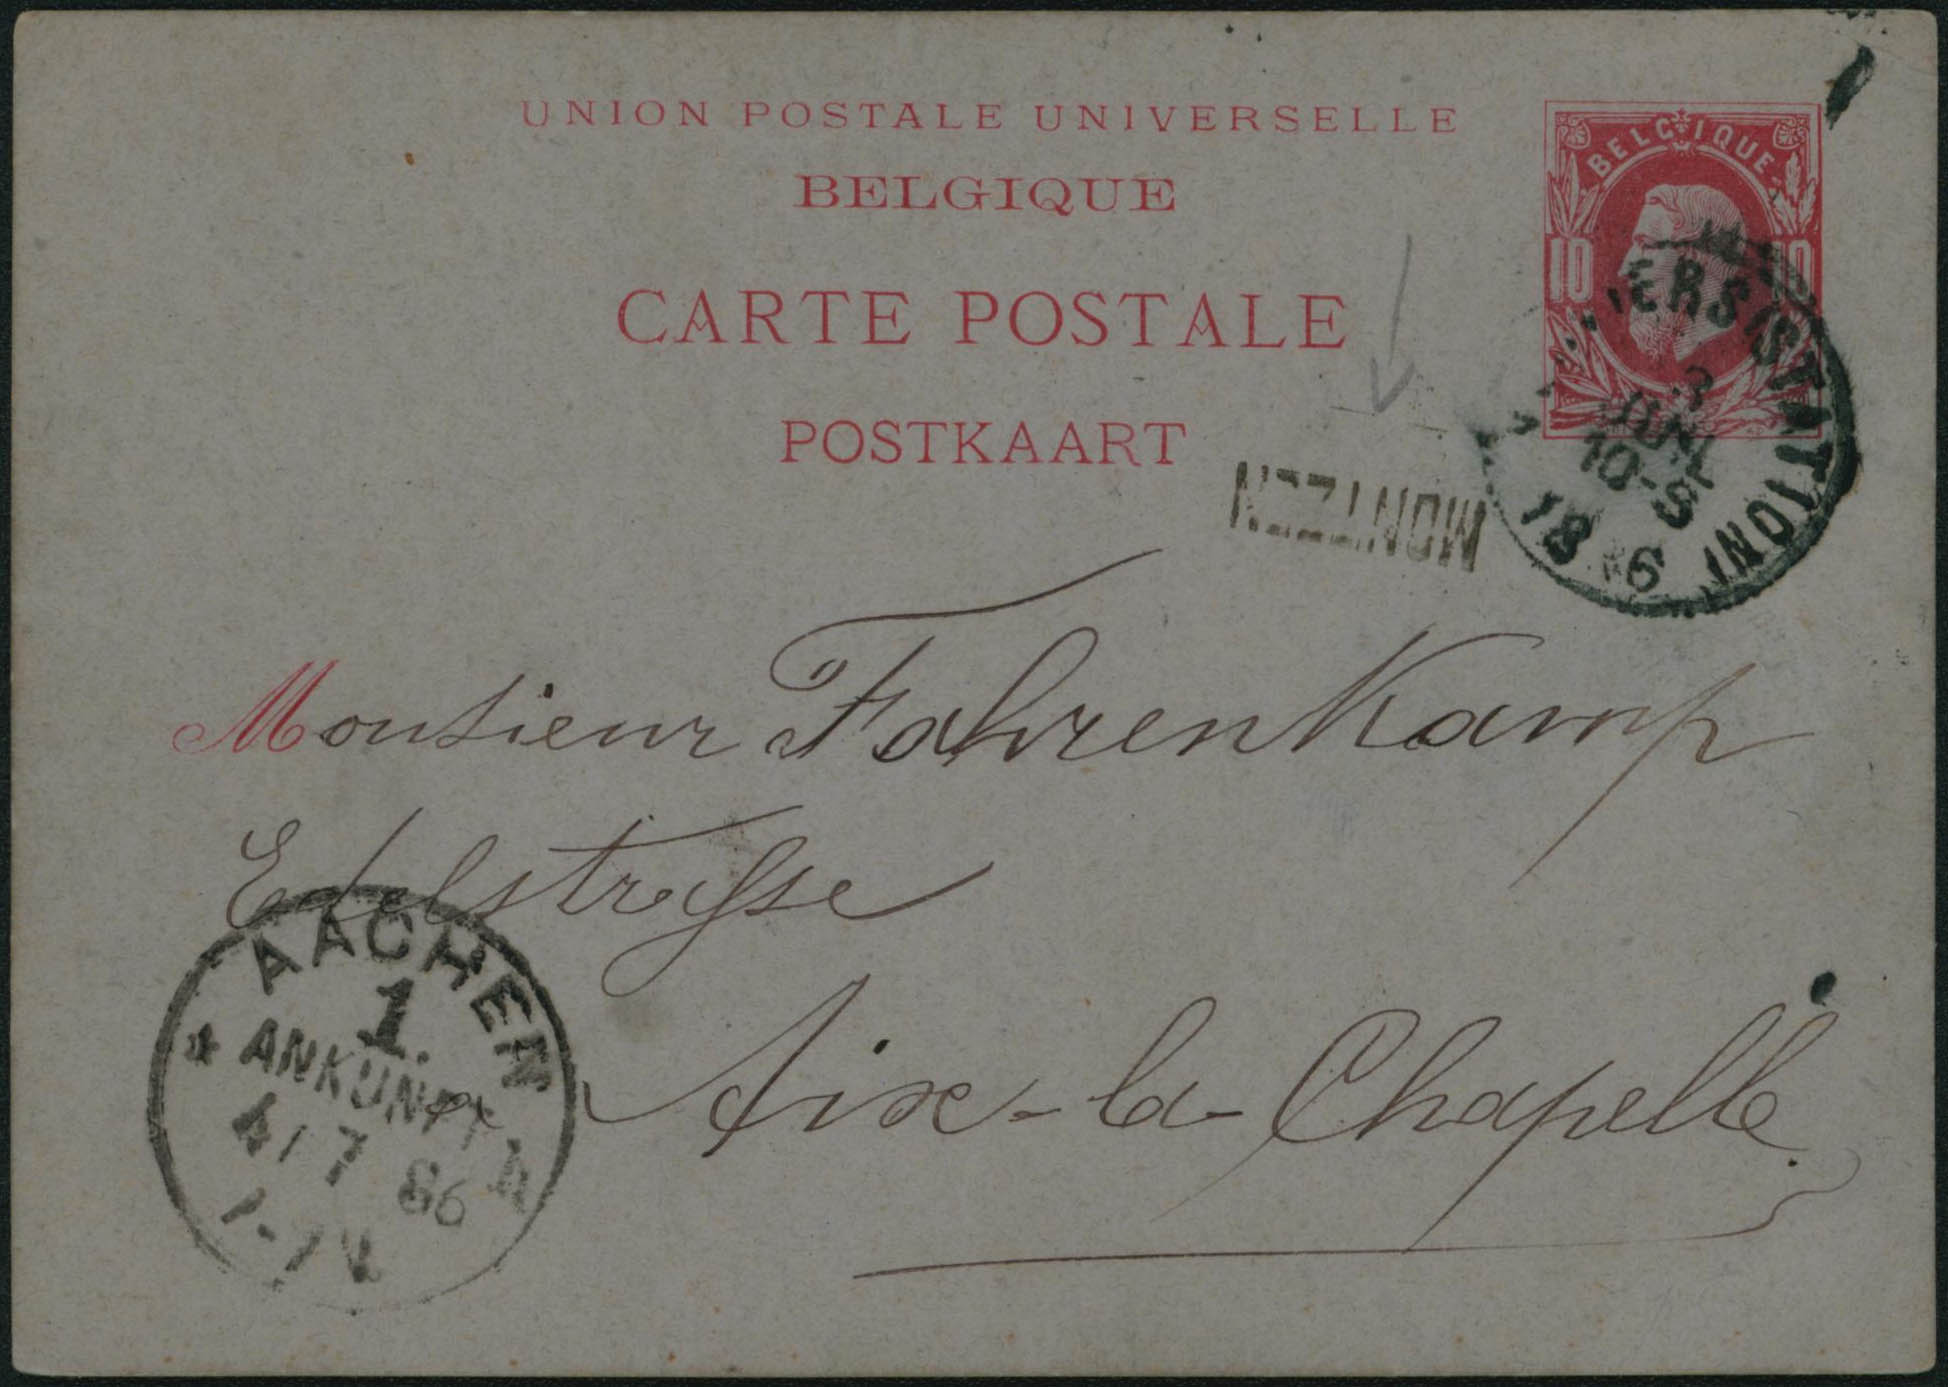 UNION POSTALE UNIVERSELLE
BELGIQUE
CARTE POSTALE
POSTKAART
BELGIQUE
10 10
VERVIERS (STATION)
3
10-S
18 6
MONTZEN
Monsieur Fahrenkamp
Edelstrasse
à Aix-la-Chapelle
AACHEN
1.
* ANKUNFT
4/7 86
1-7 N